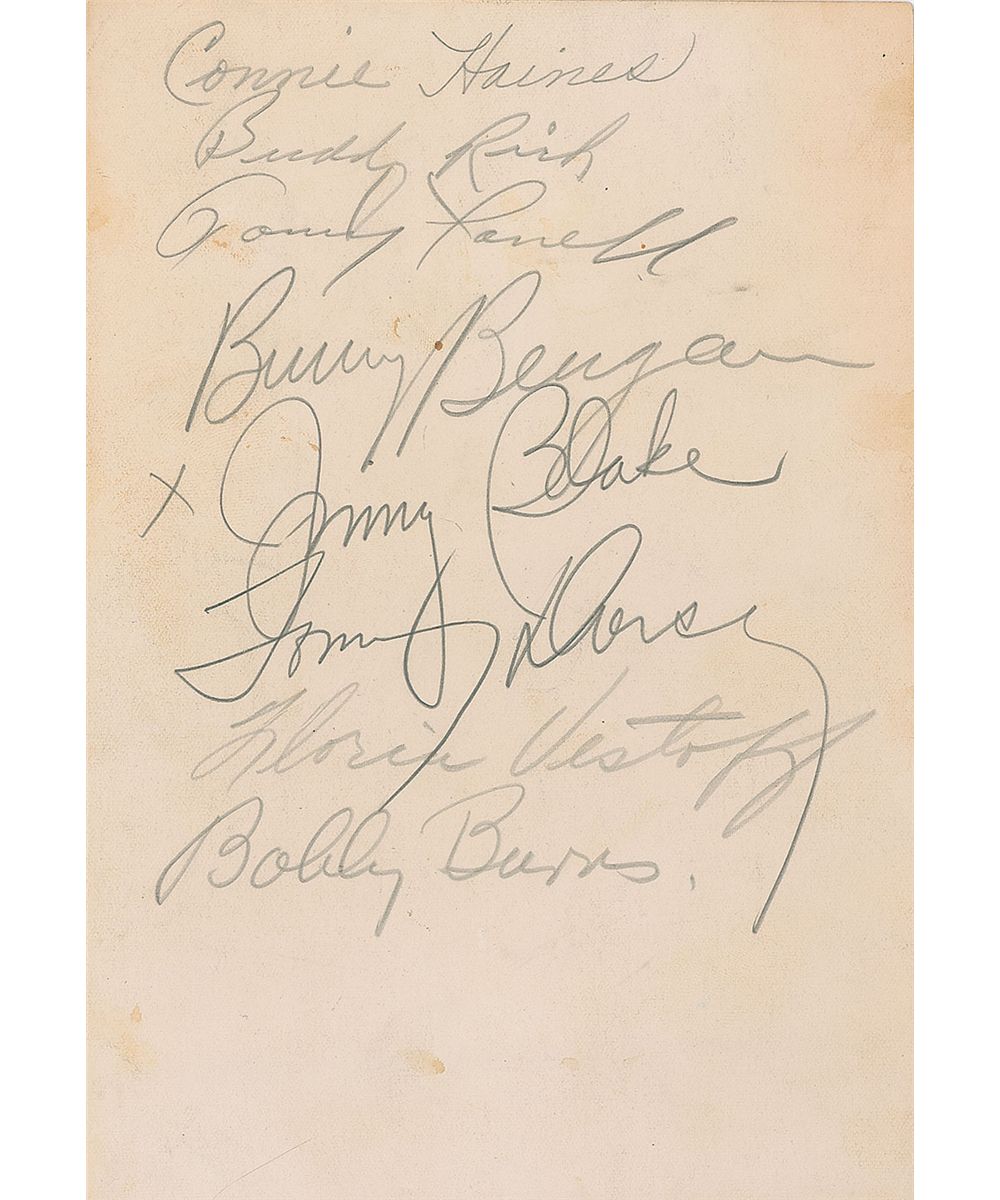 Connie Haines
Buddy Rich
Bunny Berigan
x Jimmy Blake
Tommy Dorsey
Gloria Vestoff
Bobby Burns.